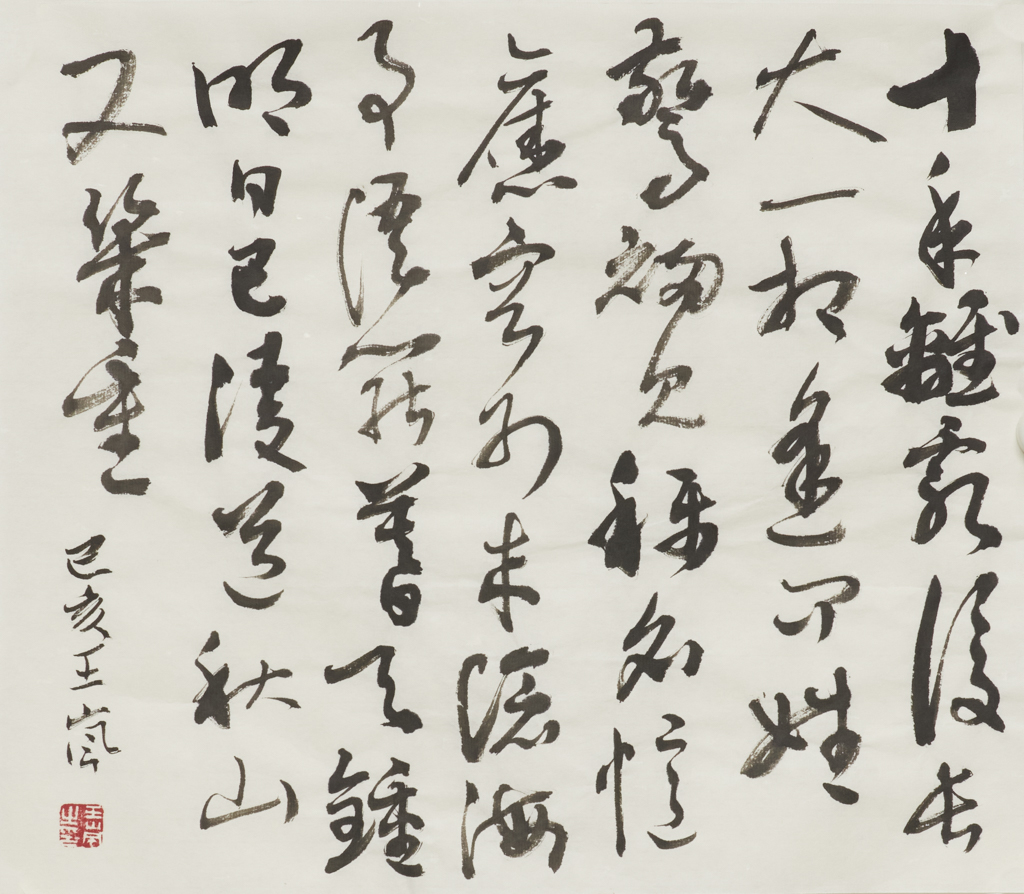 十年離亂後長
大一相逢問姓
驚初見稱名憶
舊容別來滄海
事語罷暮天鍾
明日巴陵道秋山
又幾重
己亥王嵐